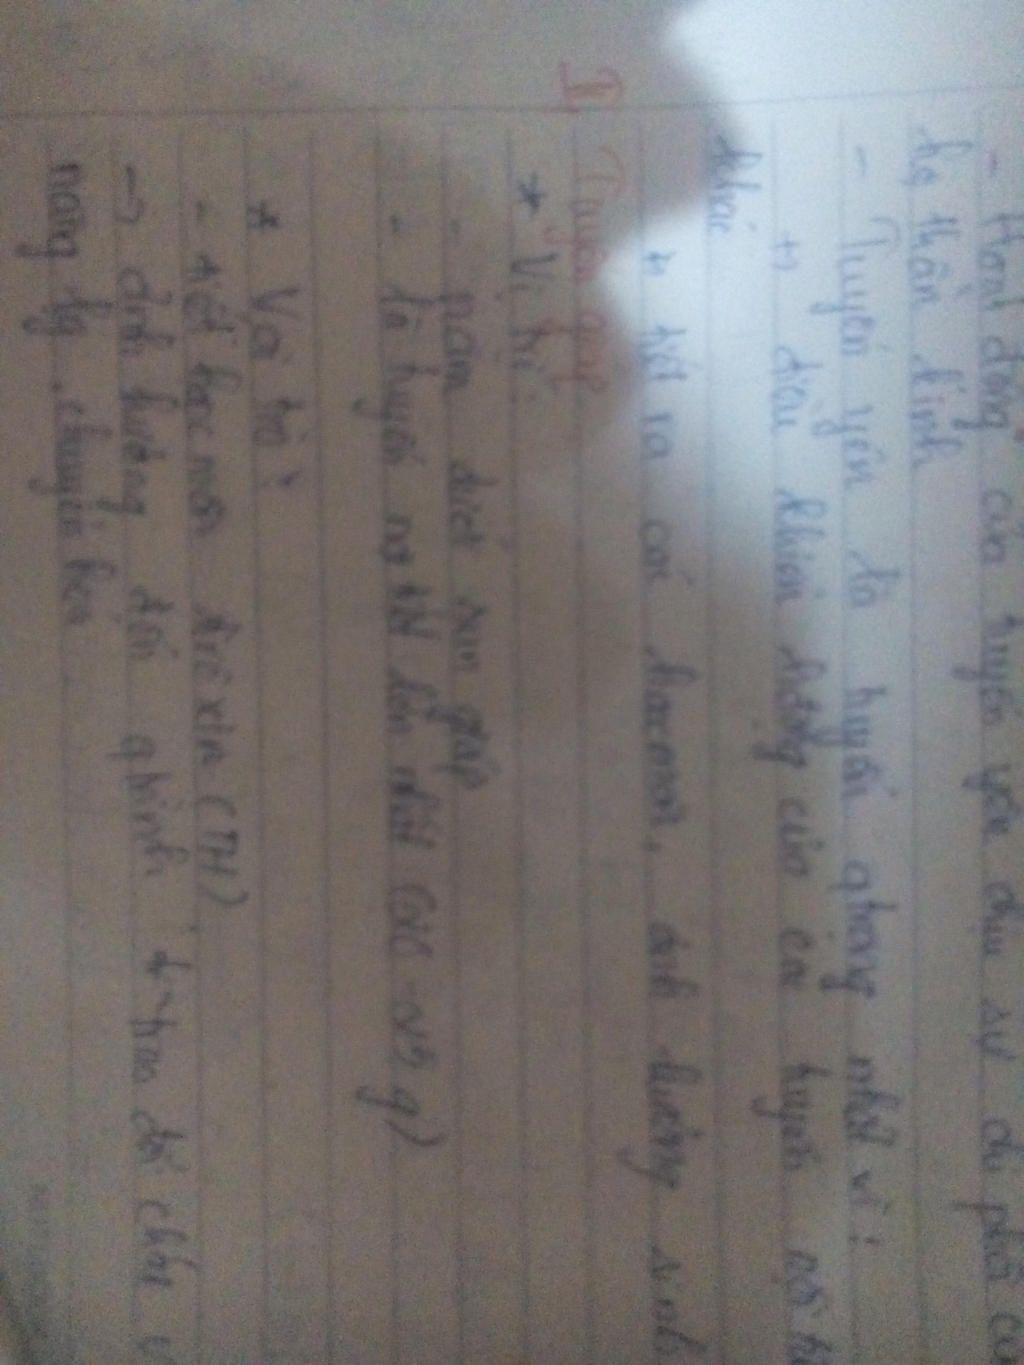 - Hoạt động của tuyến yên chịu sự chi phối củ
hệ thần kinh
- Tuyến yên là tuyến qtrọng nhất vì:
+) điều khiển hđộng của các tuyến nội
khác
+) tiết ra các hoocmon, ảnh hưởng
II Tuyến giáp
* Vị trí:
- nằm dưới sụn giáp
- là tuyến nội tiết lớn nhất (20 - 25 g)
* Vai trò:
- tiết hoocmon tirôxin (TH)
-> ảnh hưởng đến qtrình trao đổi chất
năng lg, chuyển hóa